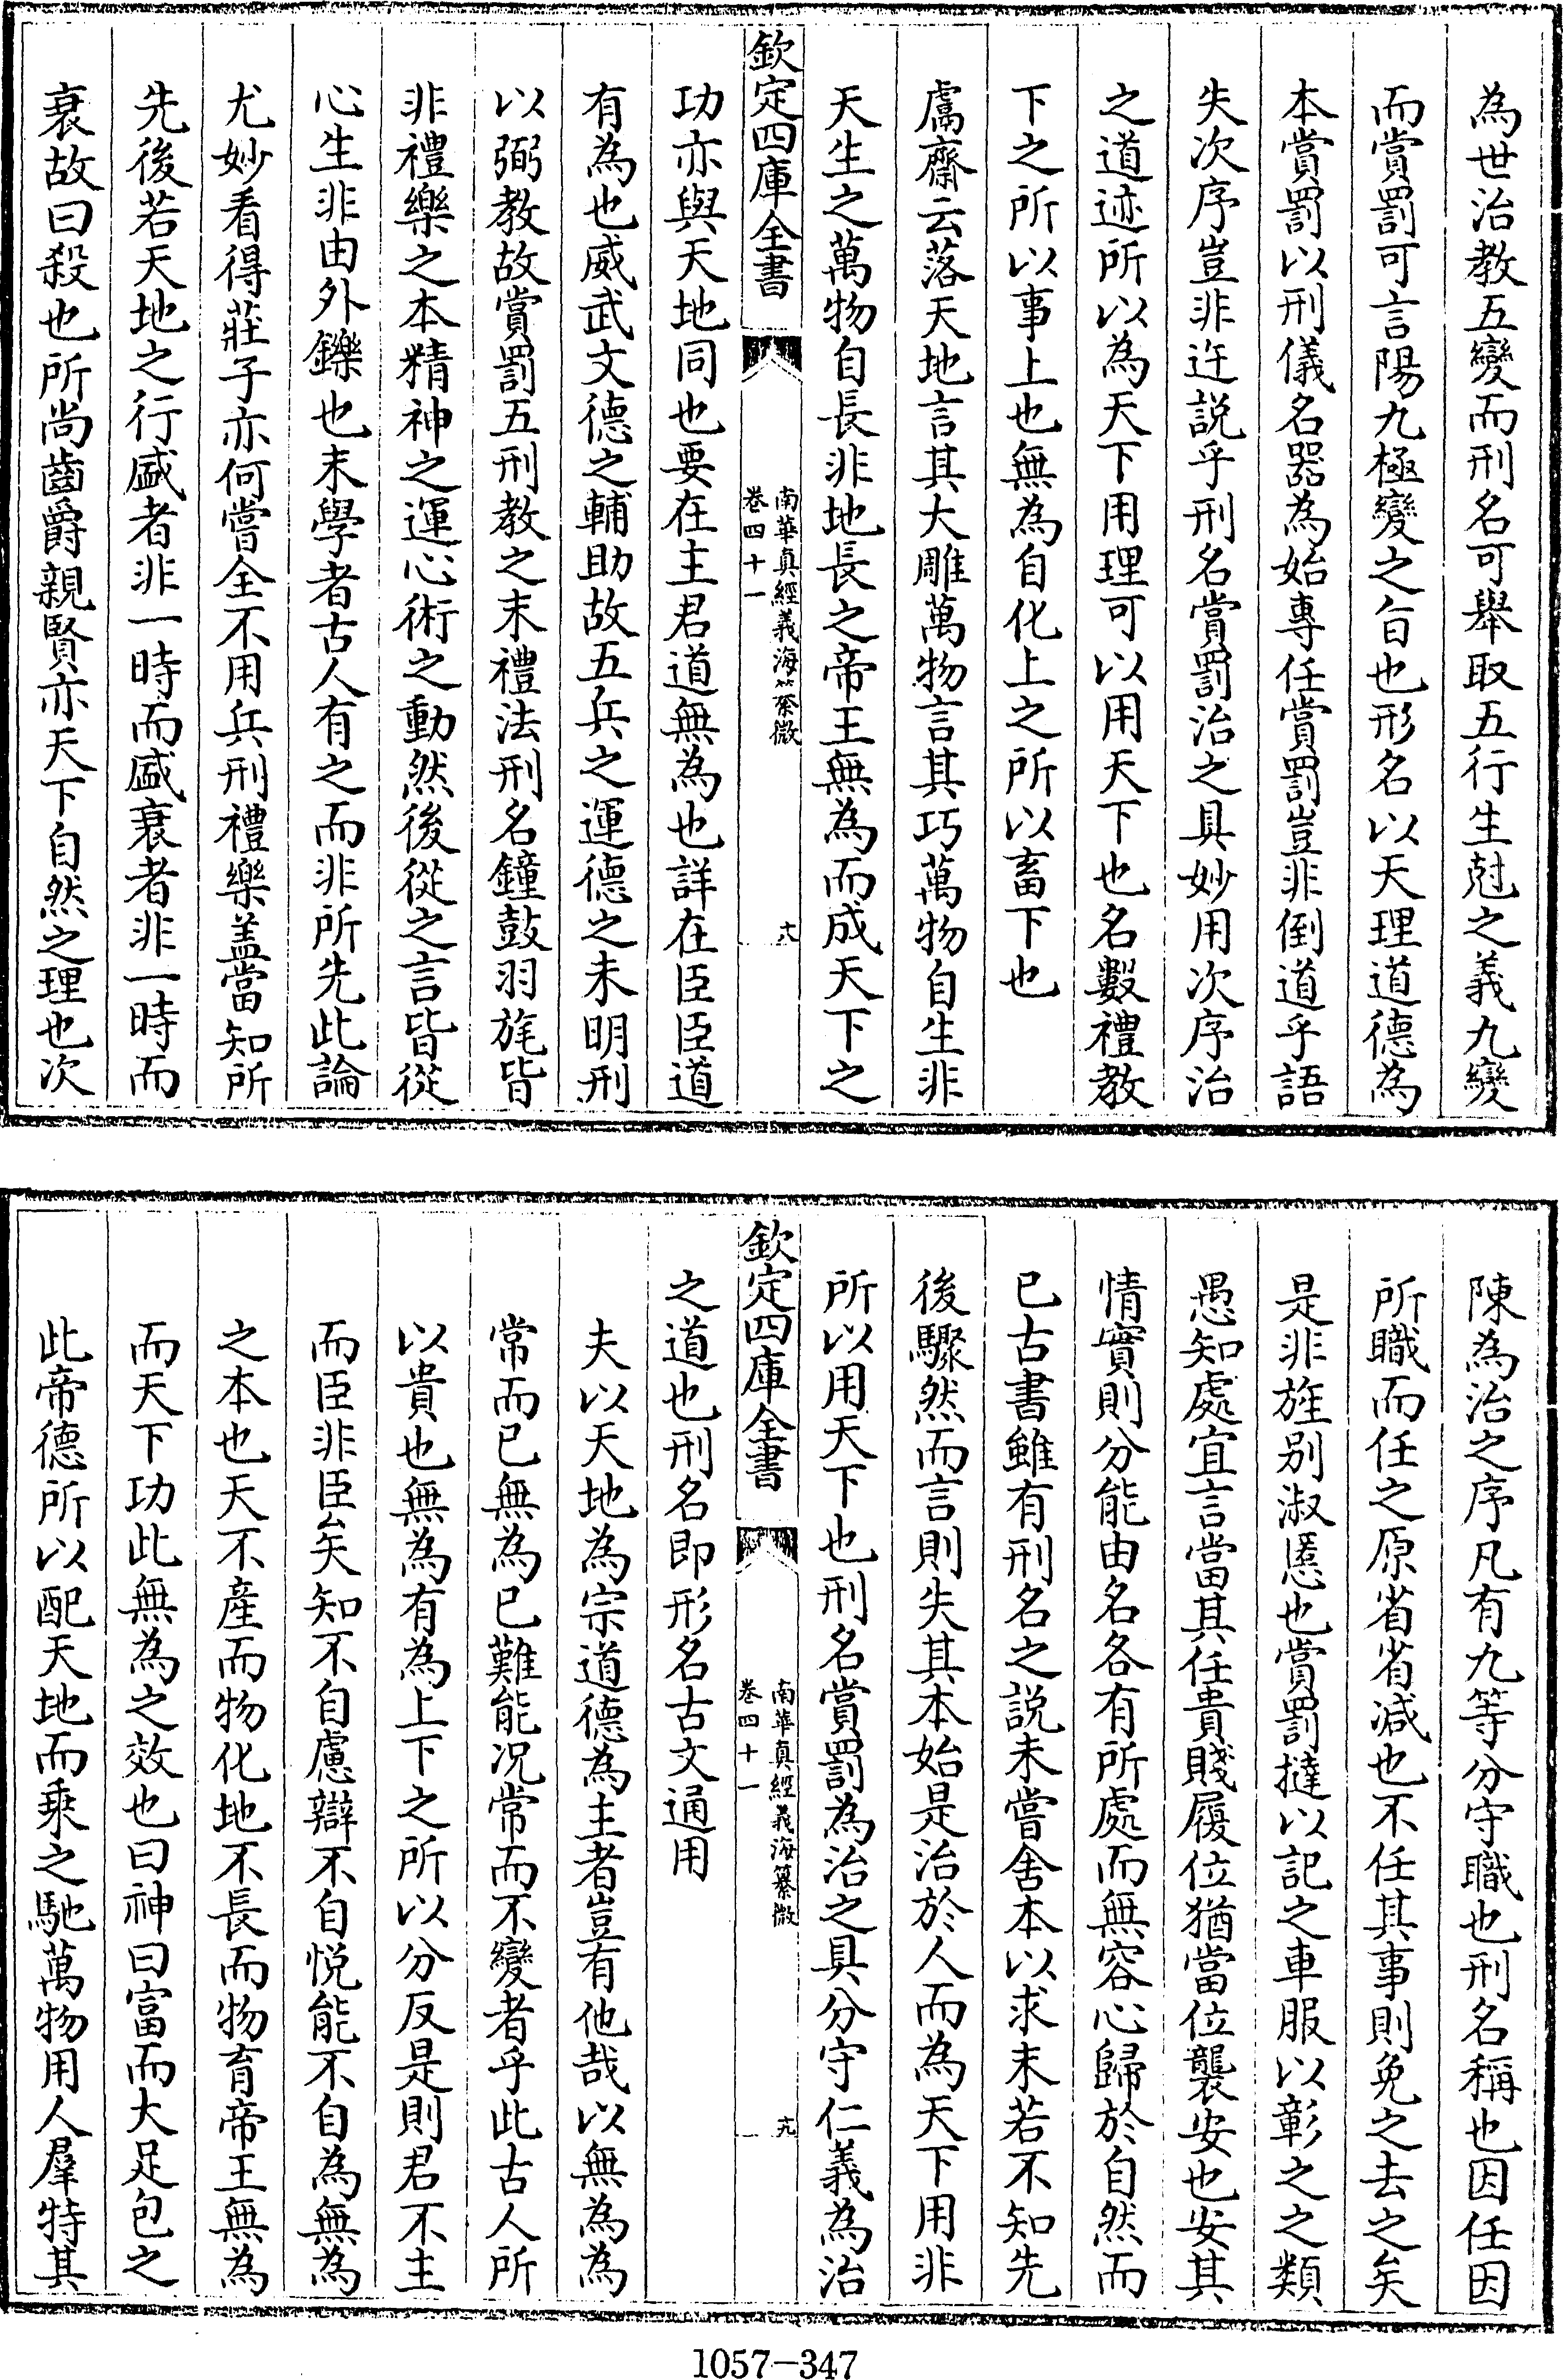 為世治教五變而刑名可舉取五行生尅之義九變
而賞罰可言陽九極變之㫖也形名以天理道德為
本賞罰以刑儀名器為始專任賞罰豈非倒道乎語
失次序豈非迕説乎刑名賞罰治之具妙用次序治
之道迹所以為天下用理可以用天下也名數禮教
下之所以事上也無為自化上之所以畜下也
鬳齋云落天地言其大雕萬物言其巧萬物自生非
天生之萬物自長非地長之帝王無為而成天下之
欽定四庫全書
南華真經義海纂微
卷四十一
十八
功亦與天地同也要在主君道無為也詳在臣臣道
有為也威武文德之輔助故五兵之運德之末明刑
以弼教故賞罰五刑教之末禮法刑名鐘鼓羽旄皆
非禮樂之本精神之運心術之動然後從之言皆從
心生非由外鑠也末學者古人有之而非所先此論
尤妙看得莊子亦何嘗全不用兵刑禮樂盖當知所
先後若天地之行盛者非一時而盛衰者非一時而
衰故曰殺也所尚齒爵親賢亦天下自然之理也次
陳為治之序凡有九等分守職也刑名稱也因任因
所職而任之原省省減也不任其事則免之去之矣
是非旌别淑慝也賞罰撻以記之車服以彰之之類
愚知處宜言當其任貴賤履位猶當位襲安也安其
情實則分能由名各有所處而無容心歸於自然而
已古書雖有刑名之説未嘗舍本以求末若不知先
後驟然而言則失其本始是治於人而為天下用非
所以用天下也刑名賞罰為治之具分守仁義為治
欽定四庫全書
南華真經義海纂微
卷四十一
十九
之道也刑名即形名古文通用
夫以天地為宗道德為主者豈有他哉以無為為
常而已無為已難能况常而不變者乎此古人所
以貴也無為有為上下之所以分反是則君不主
而臣非臣矣知不自慮辯不自悦能不自為無為
之本也天不産而物化地不長而物育帝王無為
而天下功此無為之效也曰神曰富而大足包之
此帝德所以配天地而乘之馳萬物用人羣特其
1057-347